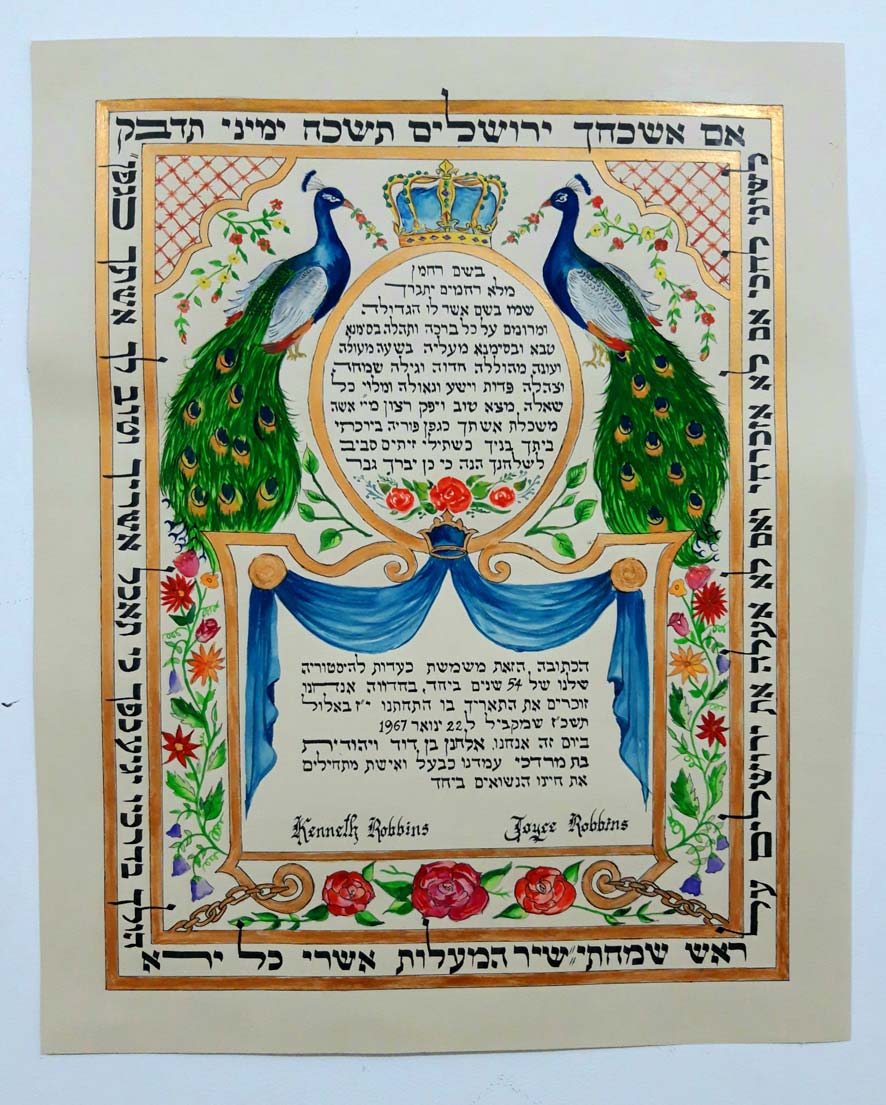 אם אשכחך ירושלים תשכח ימיני תדבק
לשוני לחכי אם לא אזכרכי אם לא אעלה את ירושלים על
ראש שמחתי שיר המעלות אשרי כל ירא
הולך בדרכיו יגיע כפיך כי תאכל אשריך וטוב לך אשתך כגפן
בשם רחמן
מלא רחמים יתברך
שמו בשם אשר לו הגדולה
ומרומם על כל ברכה ותהלה בסימנא
טבא ובסימנא מעליה בשעה מעולה
ועונה מהוללה חדוה וגילה שמחה
וצהלה פדות וישע וגאולה ומלוי כל
שאלה מצא טוב ויפק רצון מיי אשה
משכלת אשתך כגפן פוריה בירכתי
ביתך בניך כשתילי זיתים סביב
לשלחנך הנה כי כן יברך גבר
הכתובה הזאת משמשת כעדות להיסטוריה
שלנו של 54 שנים ביחד, בחדווה אנחנו
זוכרים את התאריך בו התחתנו י"ז באלול
תשכ"ז שמקביל ל 22 ינואר 1967
ביום זה אנחנו, אלחנן בן דוד ויהודית
בת מרדכי עמדנו כבעל ואישת מתחילים
את חיינו הנשואים ביחד
Kenneth Robbins Joyce Robbins